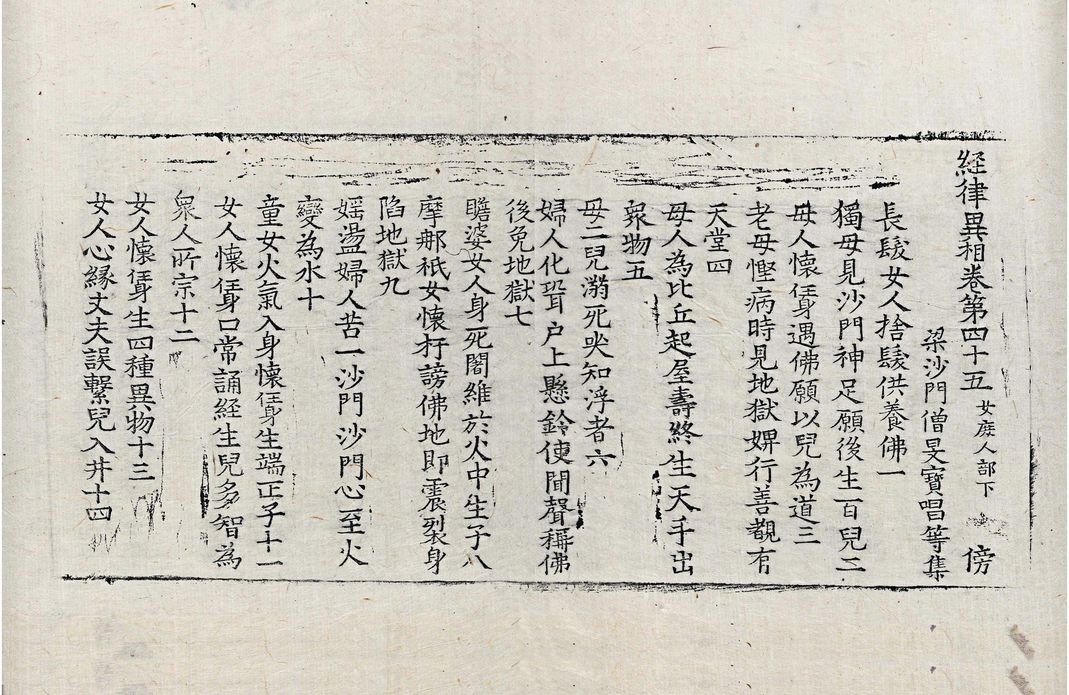 経律異相卷第四十五 女庶人部下 傍
梁沙門僧旻寶唱等集
長髮女人捨髮供養佛一
獨母見沙門神足願後生百兒二
母人懷㑗遇佛願以兒為道三
老母慳病時見地獄婢行善覩有
天堂四
母人為比丘起屋壽終生天手出
衆物五
母二兒溺死哭知浮者六
婦人化聟户上懸鈴使聞聲稱佛
後免地獄七
瞻婆女人身死闍維於火中生子八
摩那祇女懷杅謗佛地即震裂身
陷地獄九
婬蕩婦人苦一沙門沙門心至火
變為水十
童女火氣入身懷㑗生端正子十一
女人懷㑗口常誦経生兒多智為
衆人所宗十二
女人懷㑗生四種異物十三
女人心縁丈夫誤繫兒入井十四